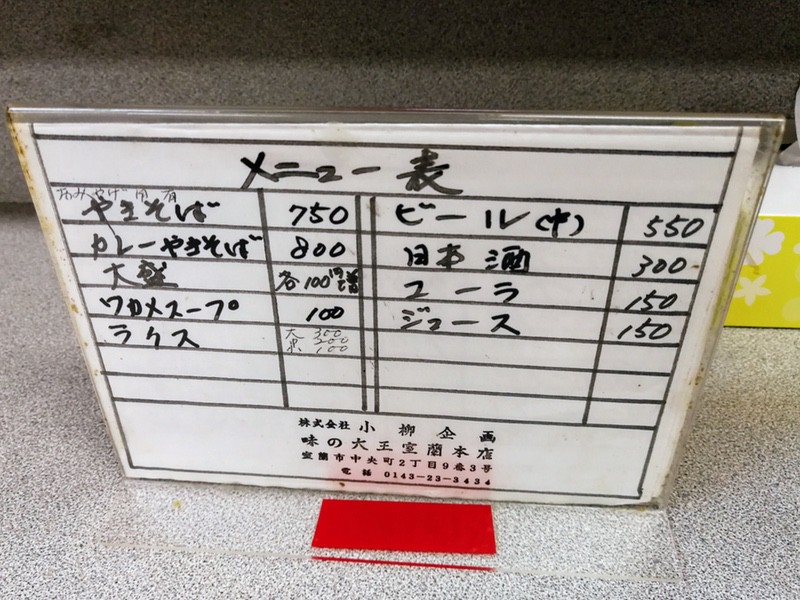 メニュー表
おみやげ用有
やきそば 750
カレーやきそば 800
大盛 各100円増
ワカメスープ 100
ライス 大 300
中 200
小 100
ビール(中) 550
日本酒 300
コーラ 150
ジュース 150
株式会社 小柳企画
味の大王室蘭本店
室蘭市中央町2丁目9番3号
電話 0143-23-3434